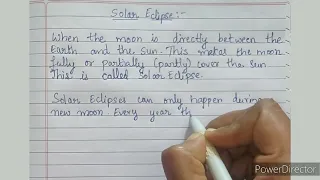 Solar Eclipse:-
When the moon is directly between the
Earth and the Sun. This makes the moon
fully or partially (partly) cover the sun
This is called Solar Eclipse.
Solar Eclipses can only happen during
new moon Every year th
PowerDirector